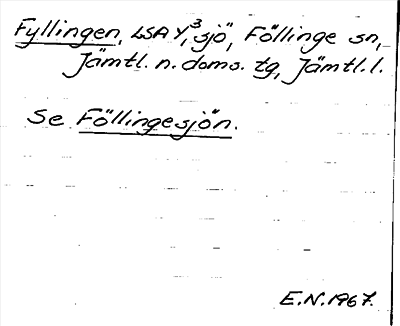 Fyllingen, LSA Y,³ sjö, Föllinge sn,
Jämtl. n. doms. tg, Jämtl. l.
Se Föllingesjön.
E.N. 1967.